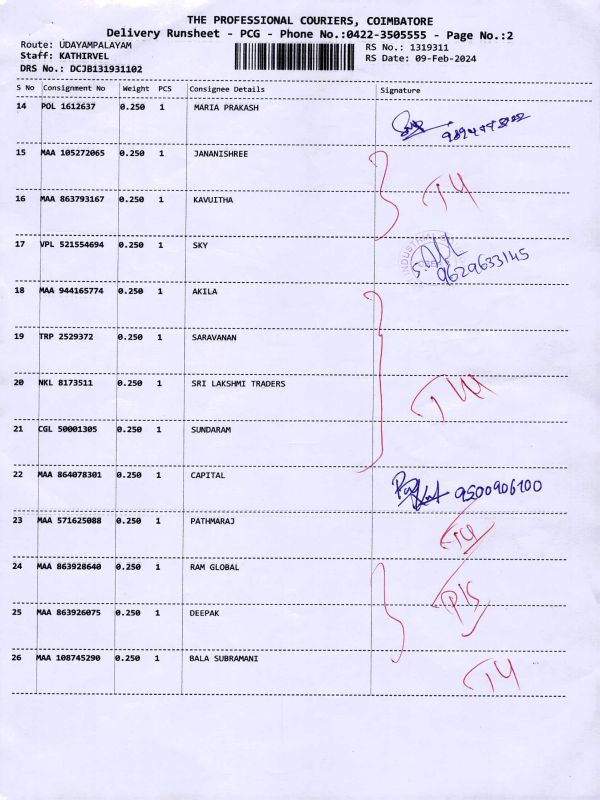 THE PROFESSIONAL COURIERS, COIMBATORE
Delivery Runsheet - PCG - Phone No.:0422-3505555 - Page No.:2
Route: UDAYAMPALAYAM RS No.: 1319311
Staff: KATHIRVEL RS Date: 09-Feb-2024
DRS No.: DCJB131931102
S No Consignment No Weight PCS Consignee Details Signature
14 POL 1612637 0.250 1 MARIA PRAKASH
15 MAA 105272065 0.250 1 JANANISHREE
TY
16 MAA 863793167 0.250 1 KAVUITHA
17 VPL 521554694 0.250 1 SKY
9629633145
18 MAA 944165774 0.250 1 AKILA
19 TRP 2529372 0.250 1 SARAVANAN
20 NKL 8173511 0.250 1 SRI LAKSHMI TRADERS
21 CGL 50001305 0.250 1 SUNDARAM
22 MAA 864078301 0.250 1 CAPITAL
9500906100
23 MAA 571625088 0.250 1 PATHMARAJ
24 MAA 863928640 0.250 1 RAM GLOBAL
25 MAA 863926075 0.250 1 DEEPAK
26 MAA 108745290 0.250 1 BALA SUBRAMANI
TY